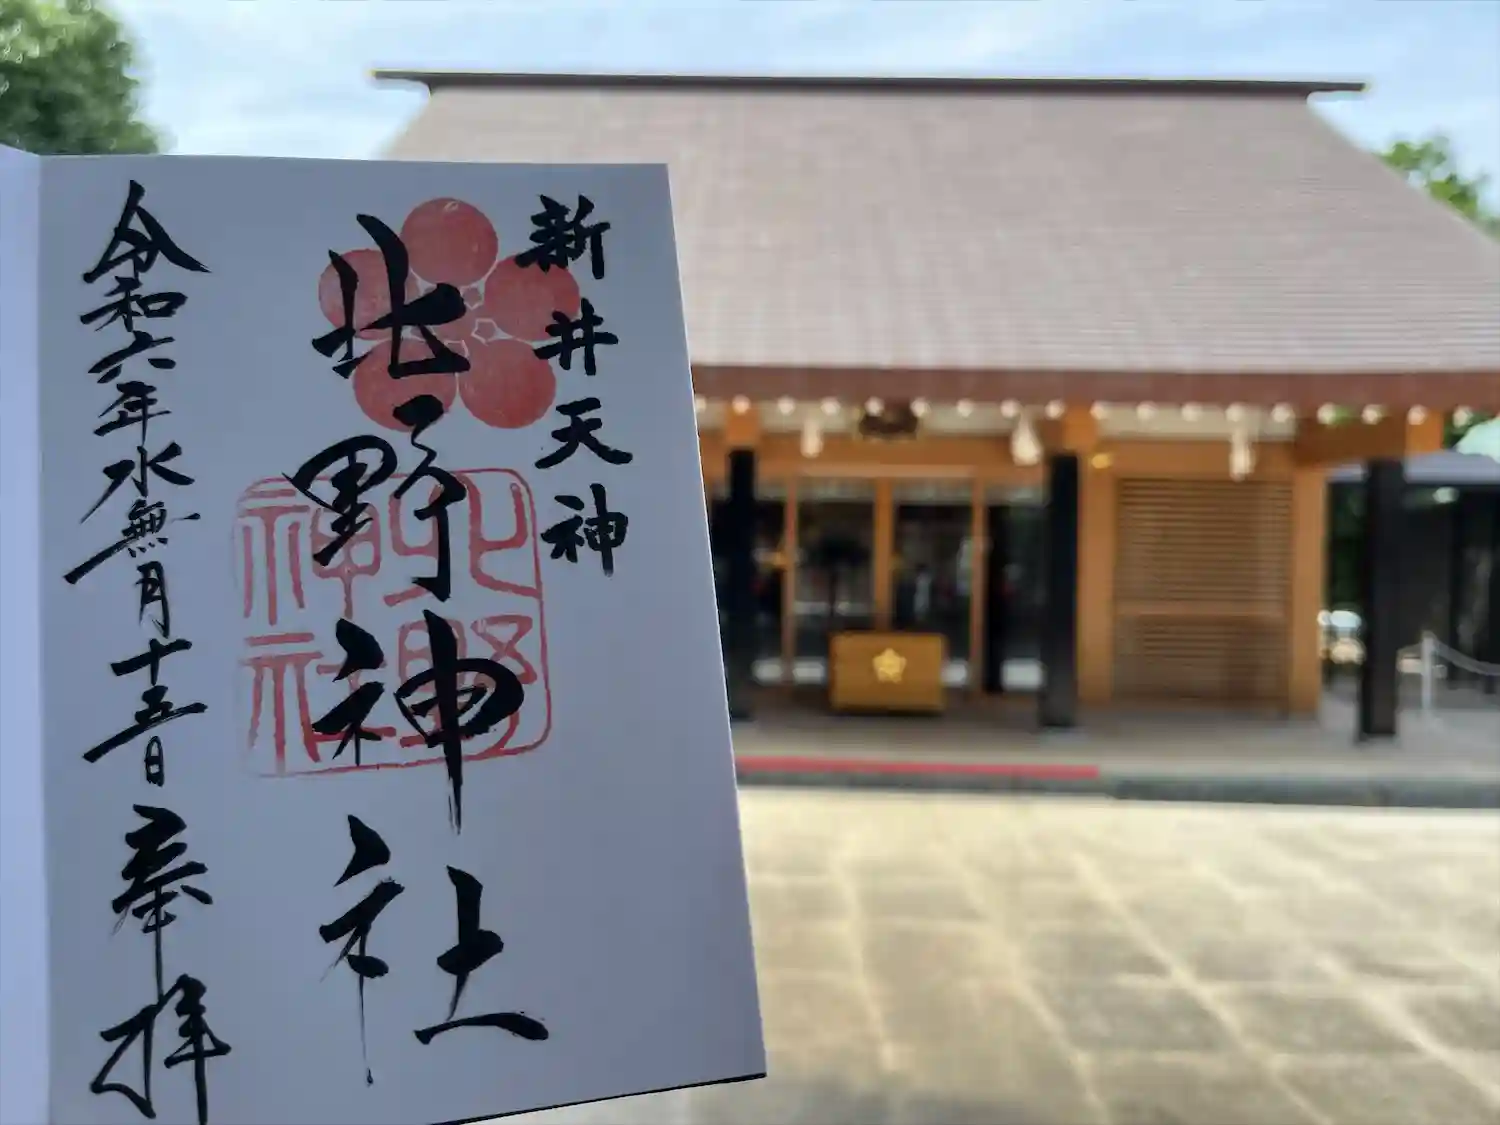 新井天神
北野神社
北野神社
令和六年水無月十五日
奉拝